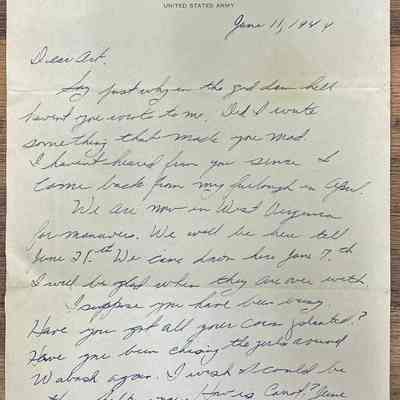 UNITED STATES ARMY
June 11, 1944
Dear Art.
Say just why in the god dam hell
havent you wrote to me. Did I wrote
something that made you mad.
I havent heard from you sense I
came back from my furlough in April.
We are now in West Virginia
for manuvers. We will be here till
June 25th We came down here June 7,th
I will be glad when they are over with.
I suppose you have been busy
Have you got all your corn planted?
Have you been chising the girls around
Wabash again. I wish I could be
How is Carol? June